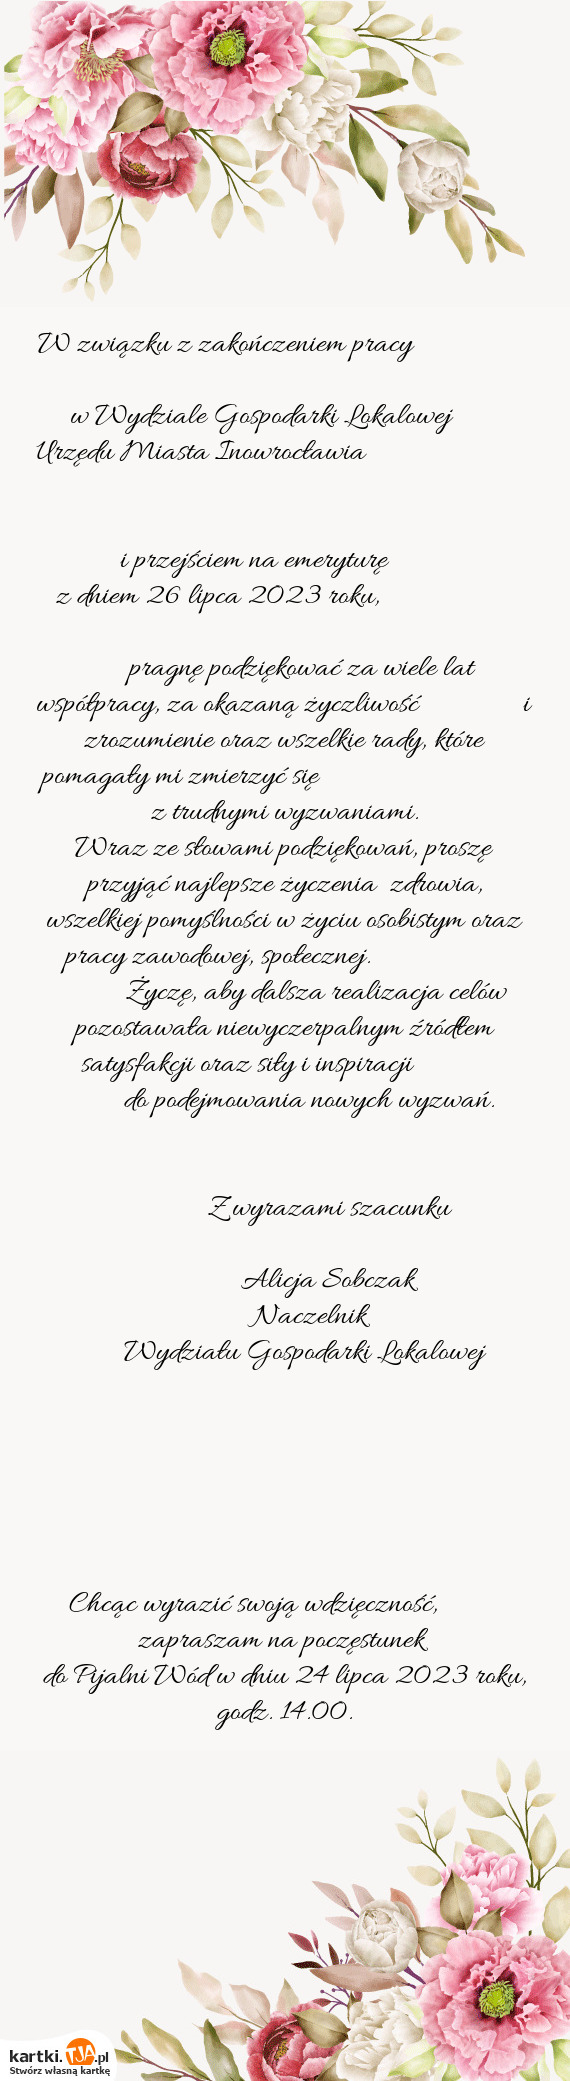 W związku z zakończeniem pracy
w Wydziale Gospodarki Lokalowej
Urzędu Miasta Inowrocławia
i przejściem na emeryturę
z dniem 26 lipca 2023 roku,
pragnę podziękować za wiele lat
współpracy, za okazaną życzliwość i
zrozumienie oraz wszelkie rady, które
pomagały mi zmierzyć się
z trudnymi wyzwaniami.
Wraz ze słowami podziękowań, proszę
przyjąć najlepsze życzenia zdrowia,
wszelkiej pomyślności w życiu osobistym oraz
pracy zawodowej, społecznej.
Życzę, aby dalsza realizacja celów
pozostawała niewyczerpalnym źródłem
satysfakcji oraz siły i inspiracji
do podejmowania nowych wyzwań.
Z wyrazami szacunku
Alicja Sobczak
Naczelnik
Wydziału Gospodarki Lokalowej
Chcąc wyrazić swoją wdzięczność,
zapraszam na poczęstunek
do Pijalni Wód w dniu 24 lipca 2023 roku,
godz. 14.00.
kartki.TJA.pl
Stwórz własną kartkę